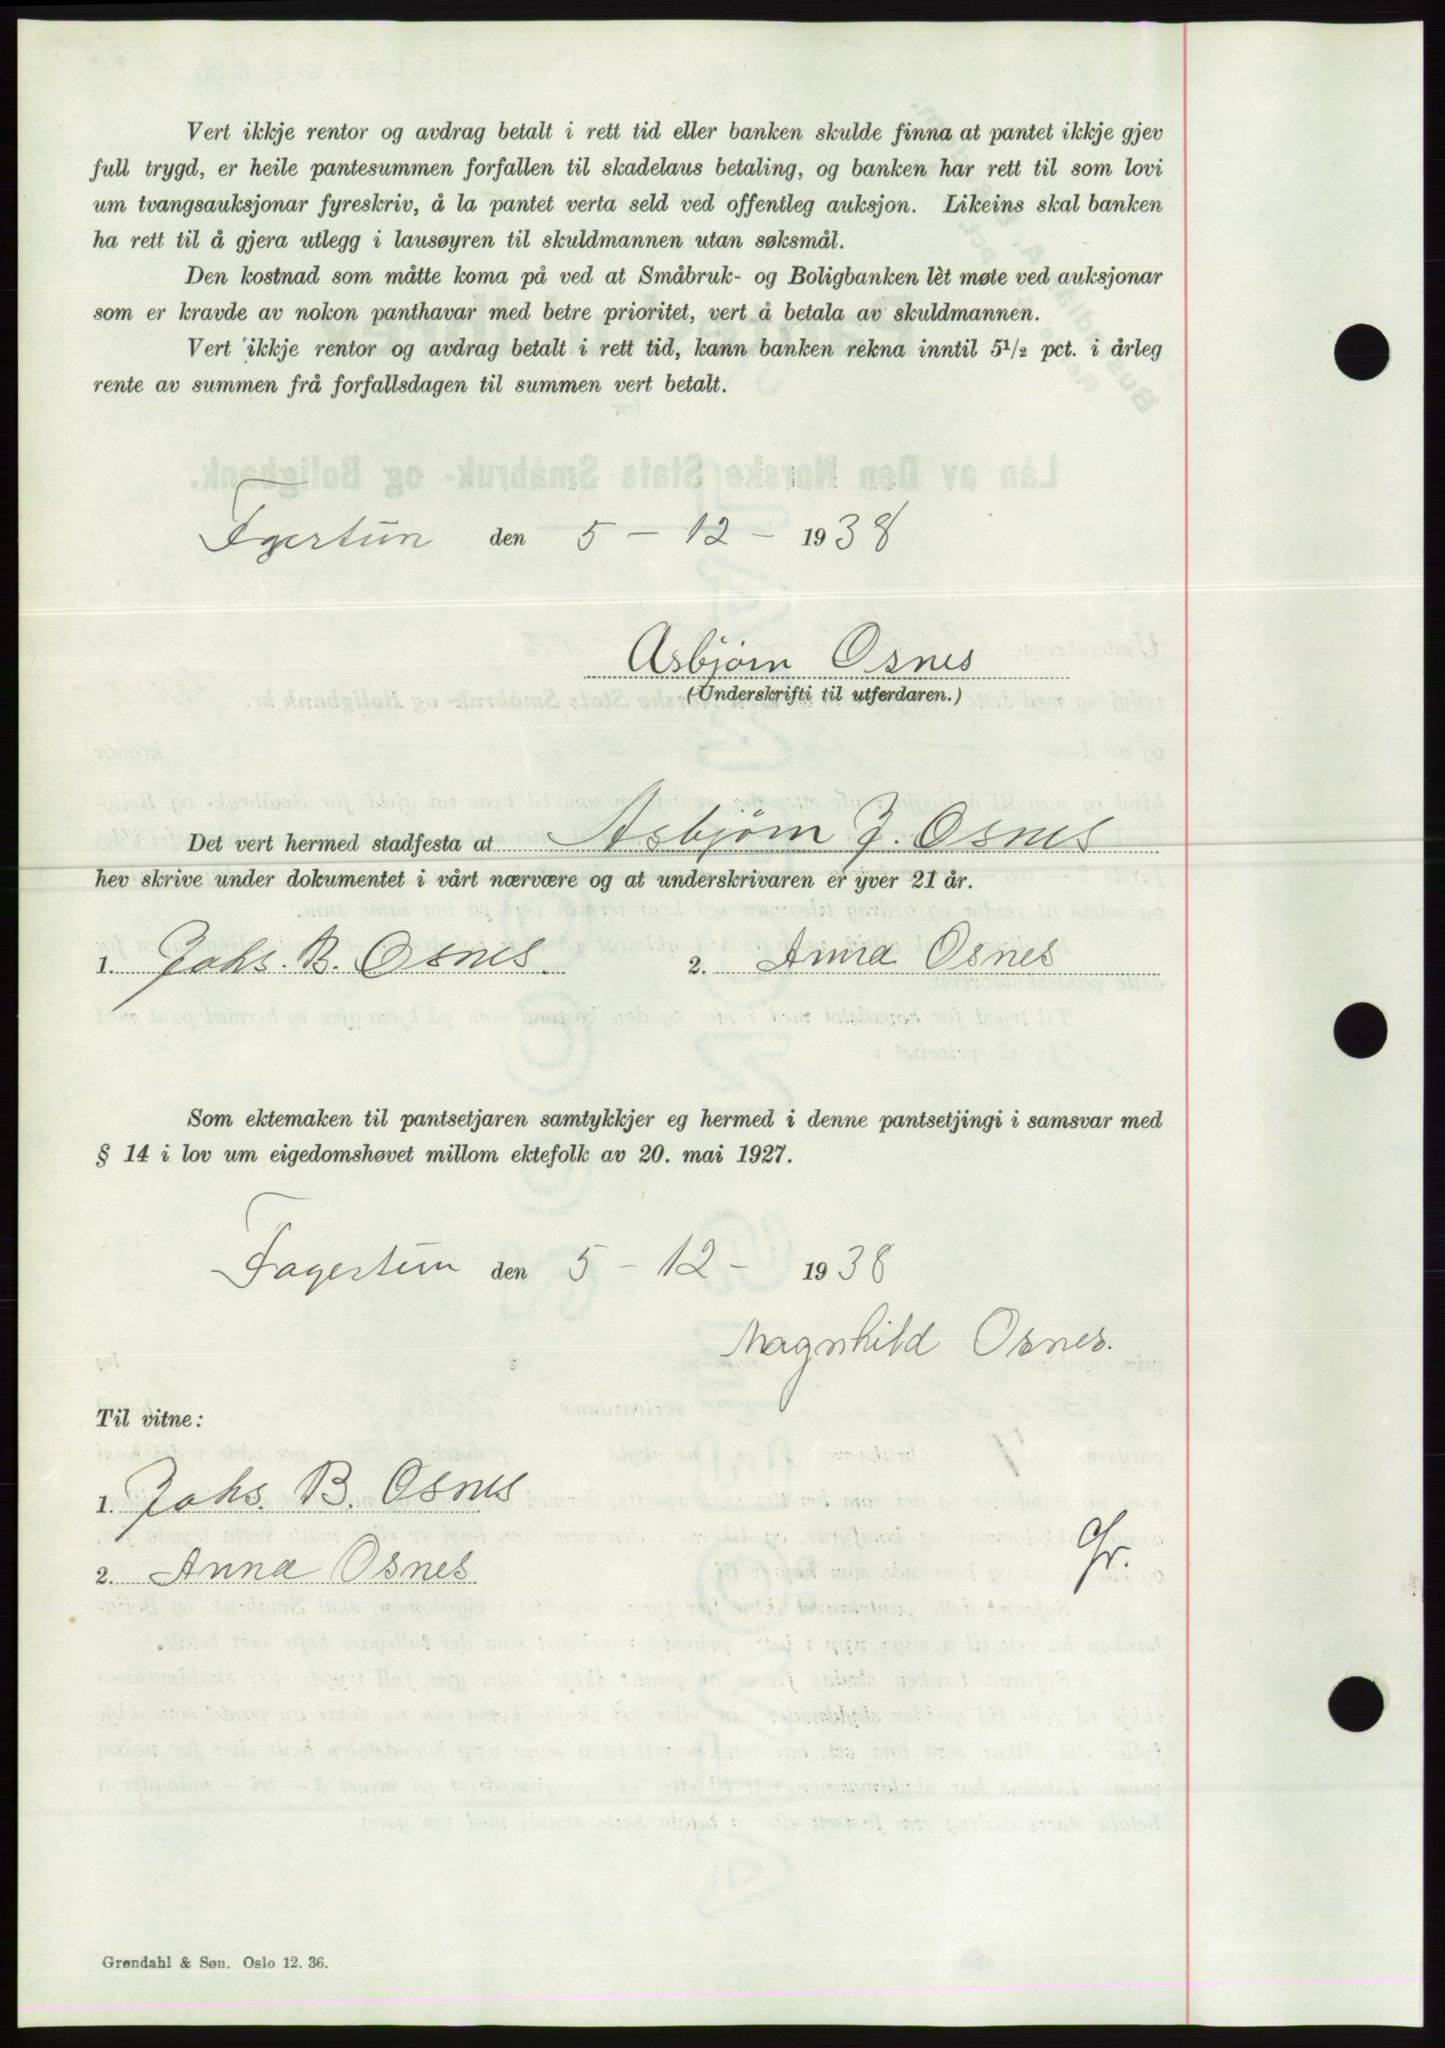 Vert ikkje rentor og avdrag betalt i rett tid eller banken skulde finna at pantet ikkje gjev
full trygd, er heile pantesummen forfallen til skadelaus betaling, og banken har rett til som lovi
um tvangsauksjonar fyreskriv, å la pantet verta seld ved offentleg auksjon. Likeins skal banken
ha rett til å gjera utlegg i lausøyren til skuldmannen utan søksmål.
Den kostnad som måtte koma på ved at Småbruk- og Boligbanken lèt møte ved auksjonar
som er kravde av nokon panthavar med betre prioritet, vert å betala av skuldmannen.
Vert ikkje rentor og avdrag betalt i rett tid, kann banken rekna inntil 5½ pct. i årleg
rente av summen frå forfallsdagen til summen vert betalt.
Fgertun den 5 - 12 - 1938
Asbjørn Osnes
(Underskrifti til utferdaren.)
Det vert hermed stadfesta at Asbjørn J. Osnes
hev skrive under dokumentet i vårt nærvære og at underskrivaren er yver 21 år.
1. Johs. B. Osnes. 2. Anna Osnes
Som ektemaken til pantsetjaren samtykkjer eg hermed i denne pantsetjingi i samsvar med
§ 14 i lov um eigedomshøvet millom ektefolk av 20. mai 1927.
Fagertun den 5 - 12 - 1938
Magnhild Osnes.
Til vitne:
1. Johs. B. Osnes
2. Anna Osnes
Gr.
Grøndahl & Søn. Oslo 12. 36.